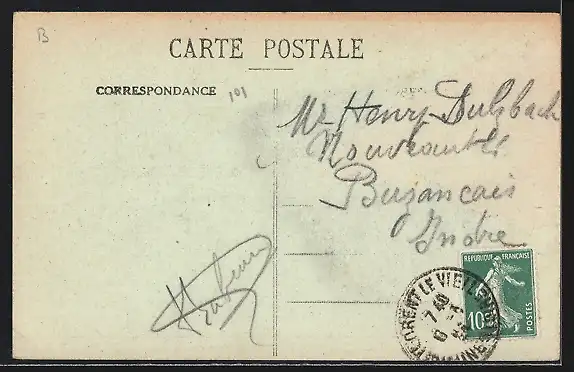 B
CARTE POSTALE
CORRESPONDANCE
101
Mr Henry Dulsbach
Nouveautés
Buzançais
Indre
REPUBLIQUE FRANÇAISE
10c
POSTES
FLORENT LE VIEIL
7 40